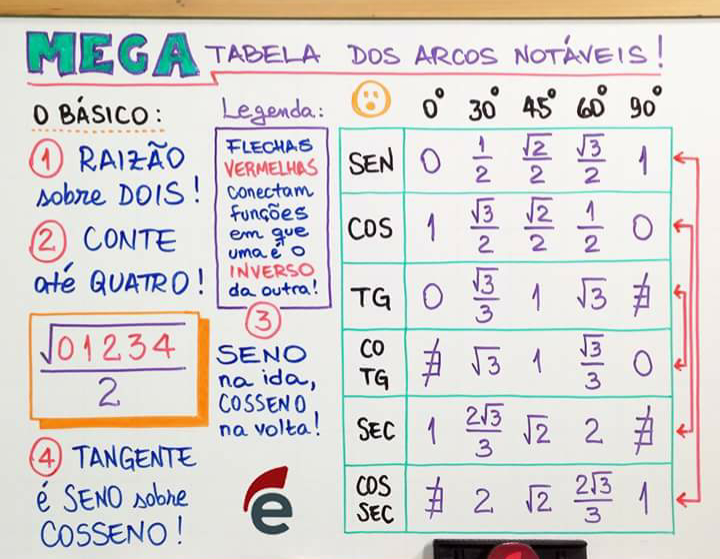 MEGA TABELA DOS ARCOS NOTÁVEIS!
O BÁSICO:
① RAIZÃO
sobre DOIS!
② CONTE
até QUATRO!
√01234
2
④ TANGENTE
é SENO sobre
COSSENO!
Legenda:
FLECHAS
VERMELHAS
conectam
funções
em que
uma é o
INVERSO
da outra!
③
SENO
na ida,
COSSENO
na volta!
e
0° 30° 45° 60° 90°
SEN 0 1/2 √2/2 √3/2 1
COS 1 √3/2 √2/2 1/2 0
TG 0 √3/3 1 √3 ∄
CO
TG ∄ √3 1 √3/3 0
SEC 1 2√3/3 √2 2 ∄
COS
SEC ∄ 2 √2 2√3/3 1